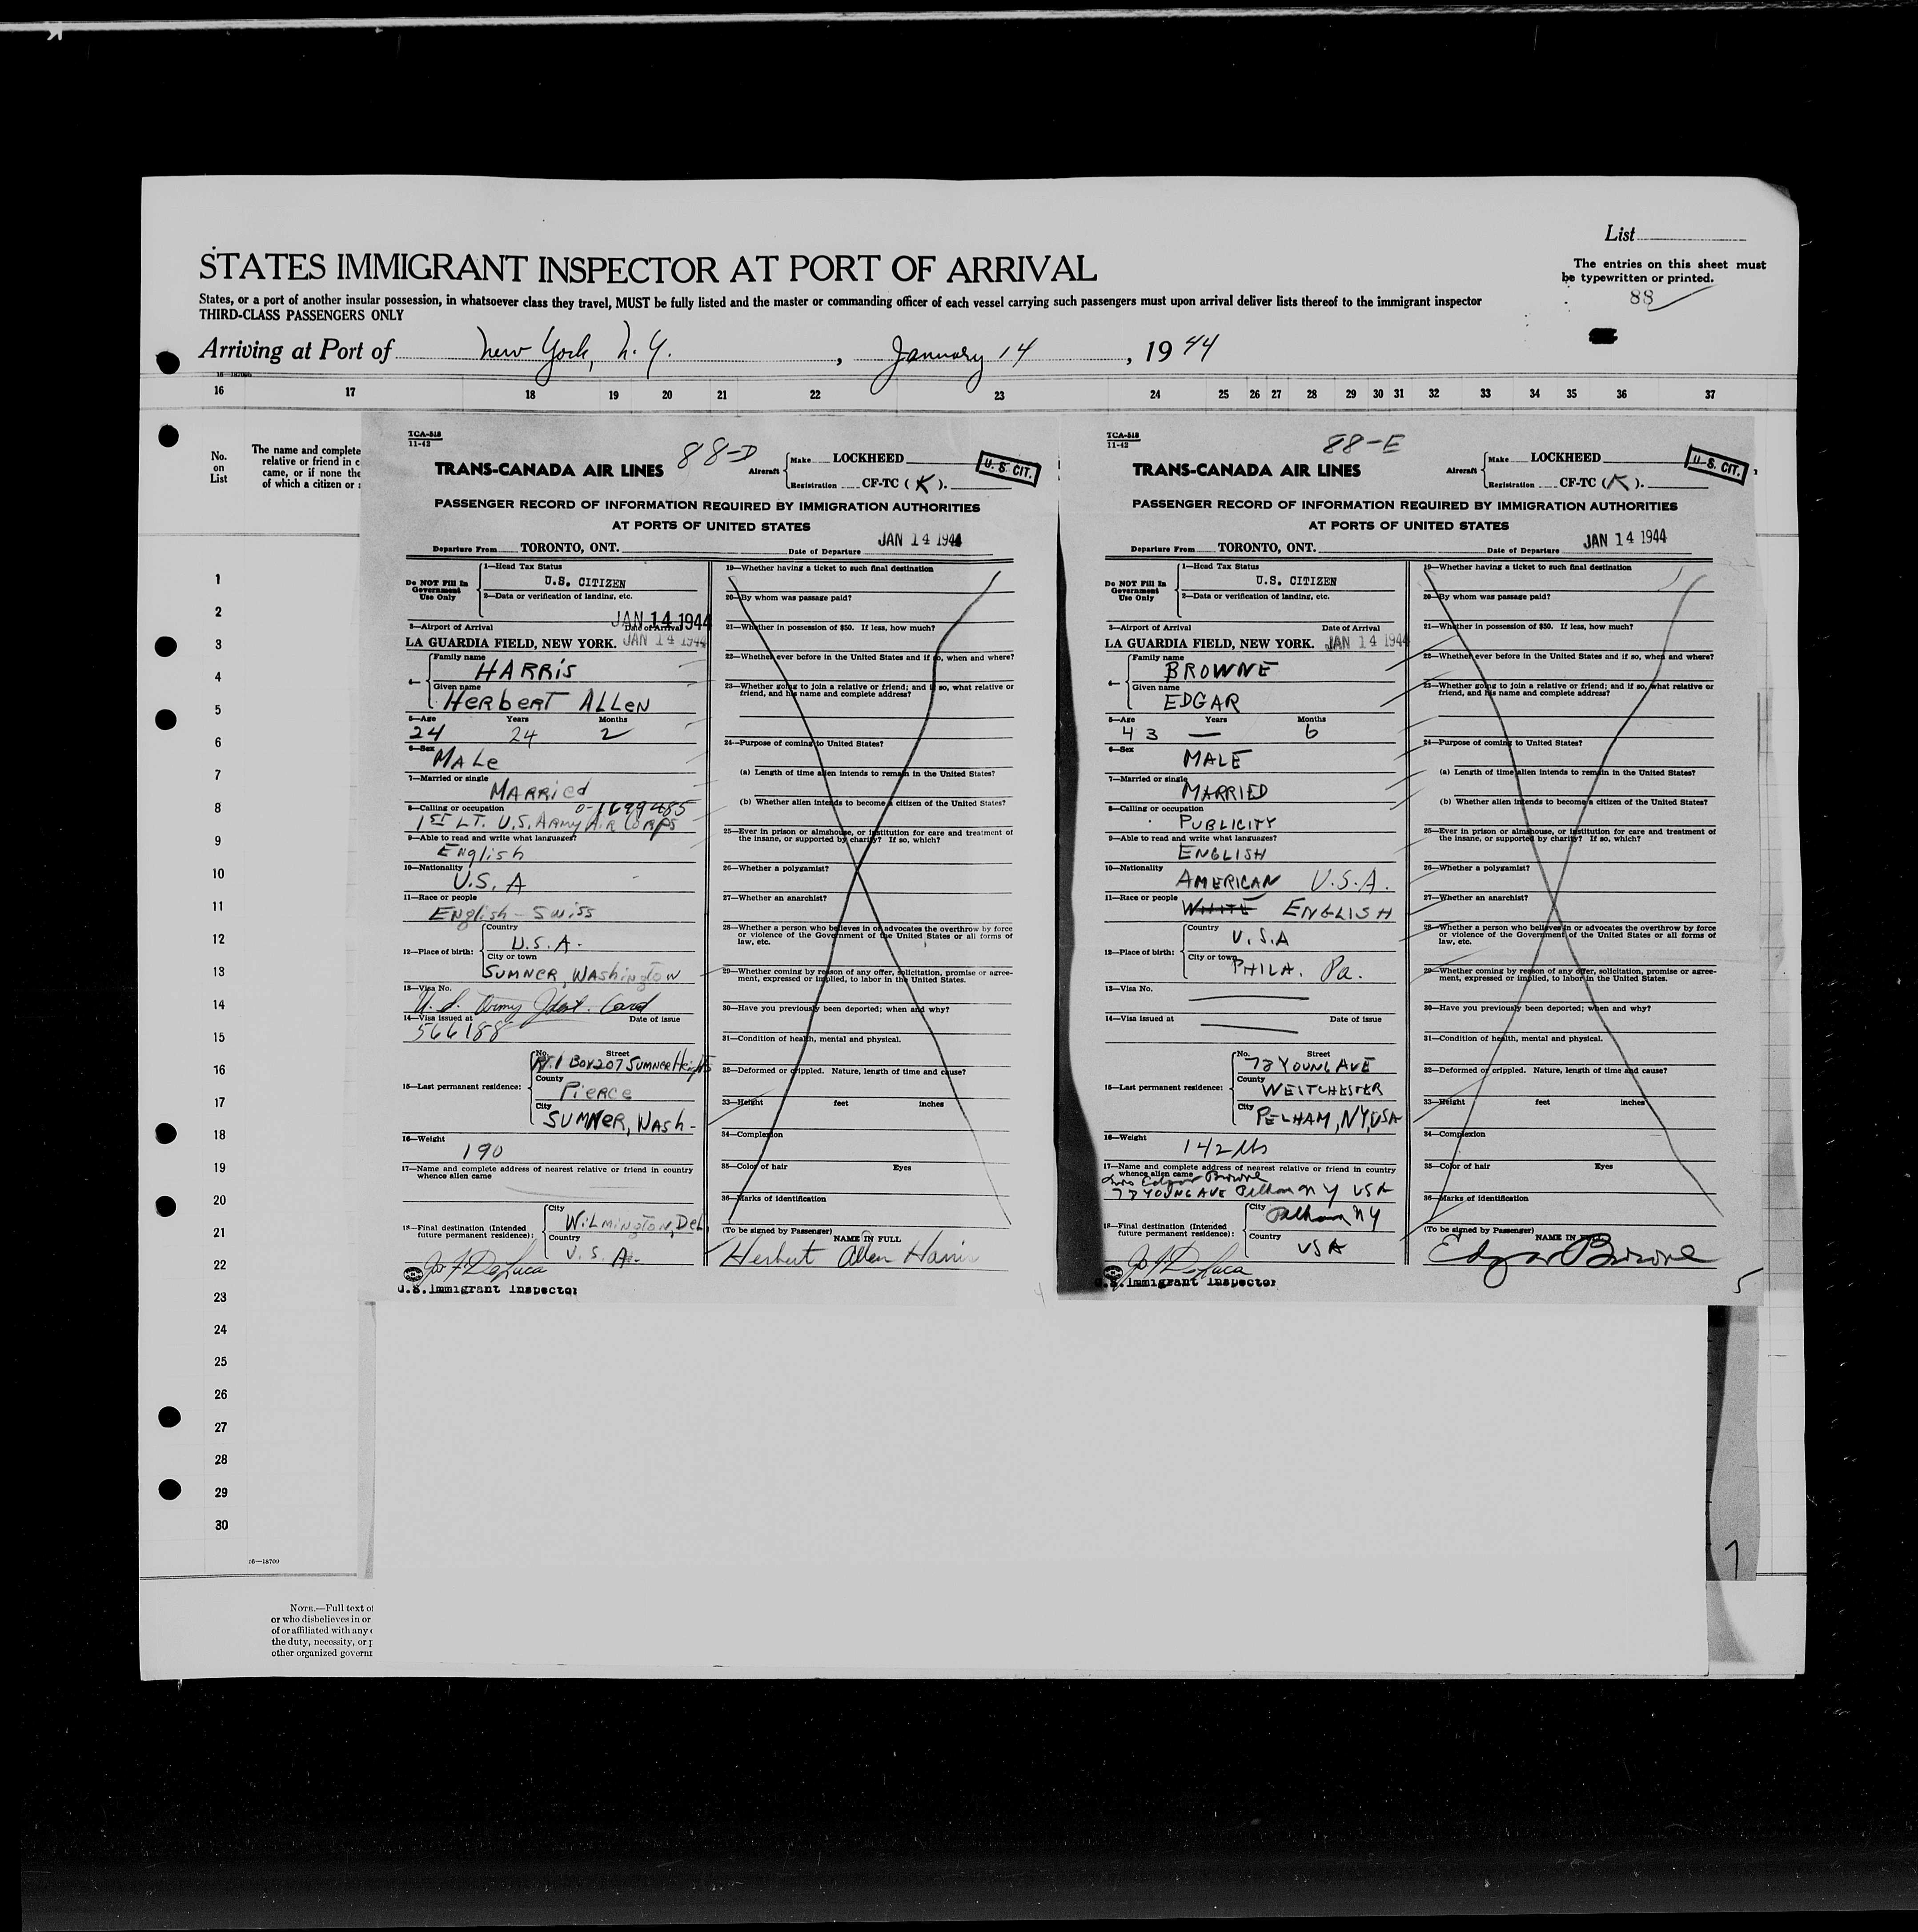 List
STATES IMMIGRANT INSPECTOR AT PORT OF ARRIVAL
The entries on this sheet must
be typewritten or printed.
88
States, or a port of another insular possession, in whatsoever class they travel, MUST be fully listed and the master or commanding officer of each vessel carrying such passengers must upon arrival deliver lists thereof to the immigrant inspector
THIRD-CLASS PASSENGERS ONLY
Arriving at Port of New York, N. Y., January 14, 1944
16 17 18 19 20 21 22 23 24 25 26 27 28 29 30 31 32 33 34 35 36 37
No.
on
List
The name and complete
relative or friend in c
came, or if none the
of which a citizen or
1
2
3
4
5
6
7
8
9
10
11
12
13
14
15
16
17
18
19
20
21
22
23
24
25
26
27
28
29
30
16—18709
NOTE.—Full text of
or who disbelieves in or
of or affiliated with any
the duty, necessity, or
other organized governm
TCA-518
11-42
88-D
TRANS-CANADA AIR LINES
Aircraft
Make LOCKHEED
Registration CF-TC (K).
U. S. CIT.
PASSENGER RECORD OF INFORMATION REQUIRED BY IMMIGRATION AUTHORITIES
AT PORTS OF UNITED STATES
Departure From TORONTO, ONT. Date of Departure JAN 14 1944
Do NOT Fill In
Government
Use Only
1—Head Tax Status
U.S. CITIZEN
2—Data or verification of landing, etc.
JAN 14 1944
3—Airport of Arrival Date of Arrival
LA GUARDIA FIELD, NEW YORK. JAN 14 1944
4—
Family name
HARRIS
Given name
HERBERT ALLEN
5—Age Years Months
24 24 2
6—Sex
MALE
7—Married or single
MARRIED
8—Calling or occupation O-1699485
1ST LT. U.S. ARMY AIR CORPS
9—Able to read and write what languages?
English
10—Nationality
U.S. A
11—Race or people
English - Swiss
12—Place of birth:
Country
U.S.A.
City or town
SUMNER, WASHINGTON
13—Visa No.
U.S. Army Ident. Card
14—Visa issued at Date of issue
566188
15—Last permanent residence:
No. Street
Rt. 1 Box 207 SUMNER Heights
County
PIERCE
City
SUMNER, WASH-
16—Weight
190
17—Name and complete address of nearest relative or friend in country
whence alien came
18—Final destination (Intended
future permanent residence):
City
WILMINGTON, DEL.
Country
U. S. A.
Jos F DeLuca
U.S. Immigrant Inspector
19—Whether having a ticket to such final destination
20—By whom was passage paid?
21—Whether in possession of $50. If less, how much?
22—Whether ever before in the United States and if so, when and where?
23—Whether going to join a relative or friend; and if so, what relative or
friend, and his name and complete address?
24—Purpose of coming to United States?
(a) Length of time alien intends to remain in the United States?
(b) Whether alien intends to become a citizen of the United States?
25—Ever in prison or almshouse, or institution for care and treatment of
the insane, or supported by charity? If so, which?
26—Whether a polygamist?
27—Whether an anarchist?
28—Whether a person who believes in or advocates the overthrow by force
or violence of the Government of the United States or all forms of
law, etc.
29—Whether coming by reason of any offer, solicitation, promise or agree-
ment, expressed or implied, to labor in the United States.
30—Have you previously been deported; when and why?
31—Condition of health, mental and physical.
32—Deformed or crippled. Nature, length of time and cause?
33—Height feet inches
34—Complexion
35—Color of hair Eyes
36—Marks of identification
(To be signed by Passenger)
NAME IN FULL
Herbert Allen Harris
TCA-518
11-42
88-E
TRANS-CANADA AIR LINES
Aircraft
Make LOCKHEED
Registration CF-TC (K).
U. S. CIT.
PASSENGER RECORD OF INFORMATION REQUIRED BY IMMIGRATION AUTHORITIES
AT PORTS OF UNITED STATES
Departure From TORONTO, ONT. Date of Departure JAN 14 1944
Do NOT Fill In
Government
Use Only
1—Head Tax Status
U.S. CITIZEN
2—Data or verification of landing, etc.
3—Airport of Arrival Date of Arrival
LA GUARDIA FIELD, NEW YORK. JAN 14 1944
4—
Family name
BROWNE
Given name
EDGAR
5—Age Years Months
43 — 6
6—Sex
MALE
7—Married or single
MARRIED
8—Calling or occupation
PUBLICITY
9—Able to read and write what languages?
ENGLISH
10—Nationality
AMERICAN U.S.A.
11—Race or people WHITE ENGLISH
12—Place of birth:
Country
U.S.A
City or town
PHILA. Pa.
13—Visa No.
14—Visa issued at Date of issue
15—Last permanent residence:
No. Street
73 YOUNG AVE
County
WESTCHESTER
City
PELHAM, NY, USA
16—Weight
142 lbs
17—Name and complete address of nearest relative or friend in country
whence alien came
Mrs Edgar Browne
73 YOUNG AVE Pelham N Y USA
18—Final destination (Intended
future permanent residence):
City
Pelham NY
Country
USA
Jos F DeLuca
U.S. Immigrant Inspector
19—Whether having a ticket to such final destination
20—By whom was passage paid?
21—Whether in possession of $50. If less, how much?
22—Whether ever before in the United States and if so, when and where?
23—Whether going to join a relative or friend; and if so, what relative or
friend, and his name and complete address?
24—Purpose of coming to United States?
(a) Length of time alien intends to remain in the United States?
(b) Whether alien intends to become a citizen of the United States?
25—Ever in prison or almshouse, or institution for care and treatment of
the insane, or supported by charity? If so, which?
26—Whether a polygamist?
27—Whether an anarchist?
28—Whether a person who believes in or advocates the overthrow by force
or violence of the Government of the United States or all forms of
law, etc.
29—Whether coming by reason of any offer, solicitation, promise or agree-
ment, expressed or implied, to labor in the United States.
30—Have you previously been deported; when and why?
31—Condition of health, mental and physical.
32—Deformed or crippled. Nature, length of time and cause?
33—Height feet inches
34—Complexion
35—Color of hair Eyes
36—Marks of identification
(To be signed by Passenger)
NAME IN FULL
Edgar Browne
5
7